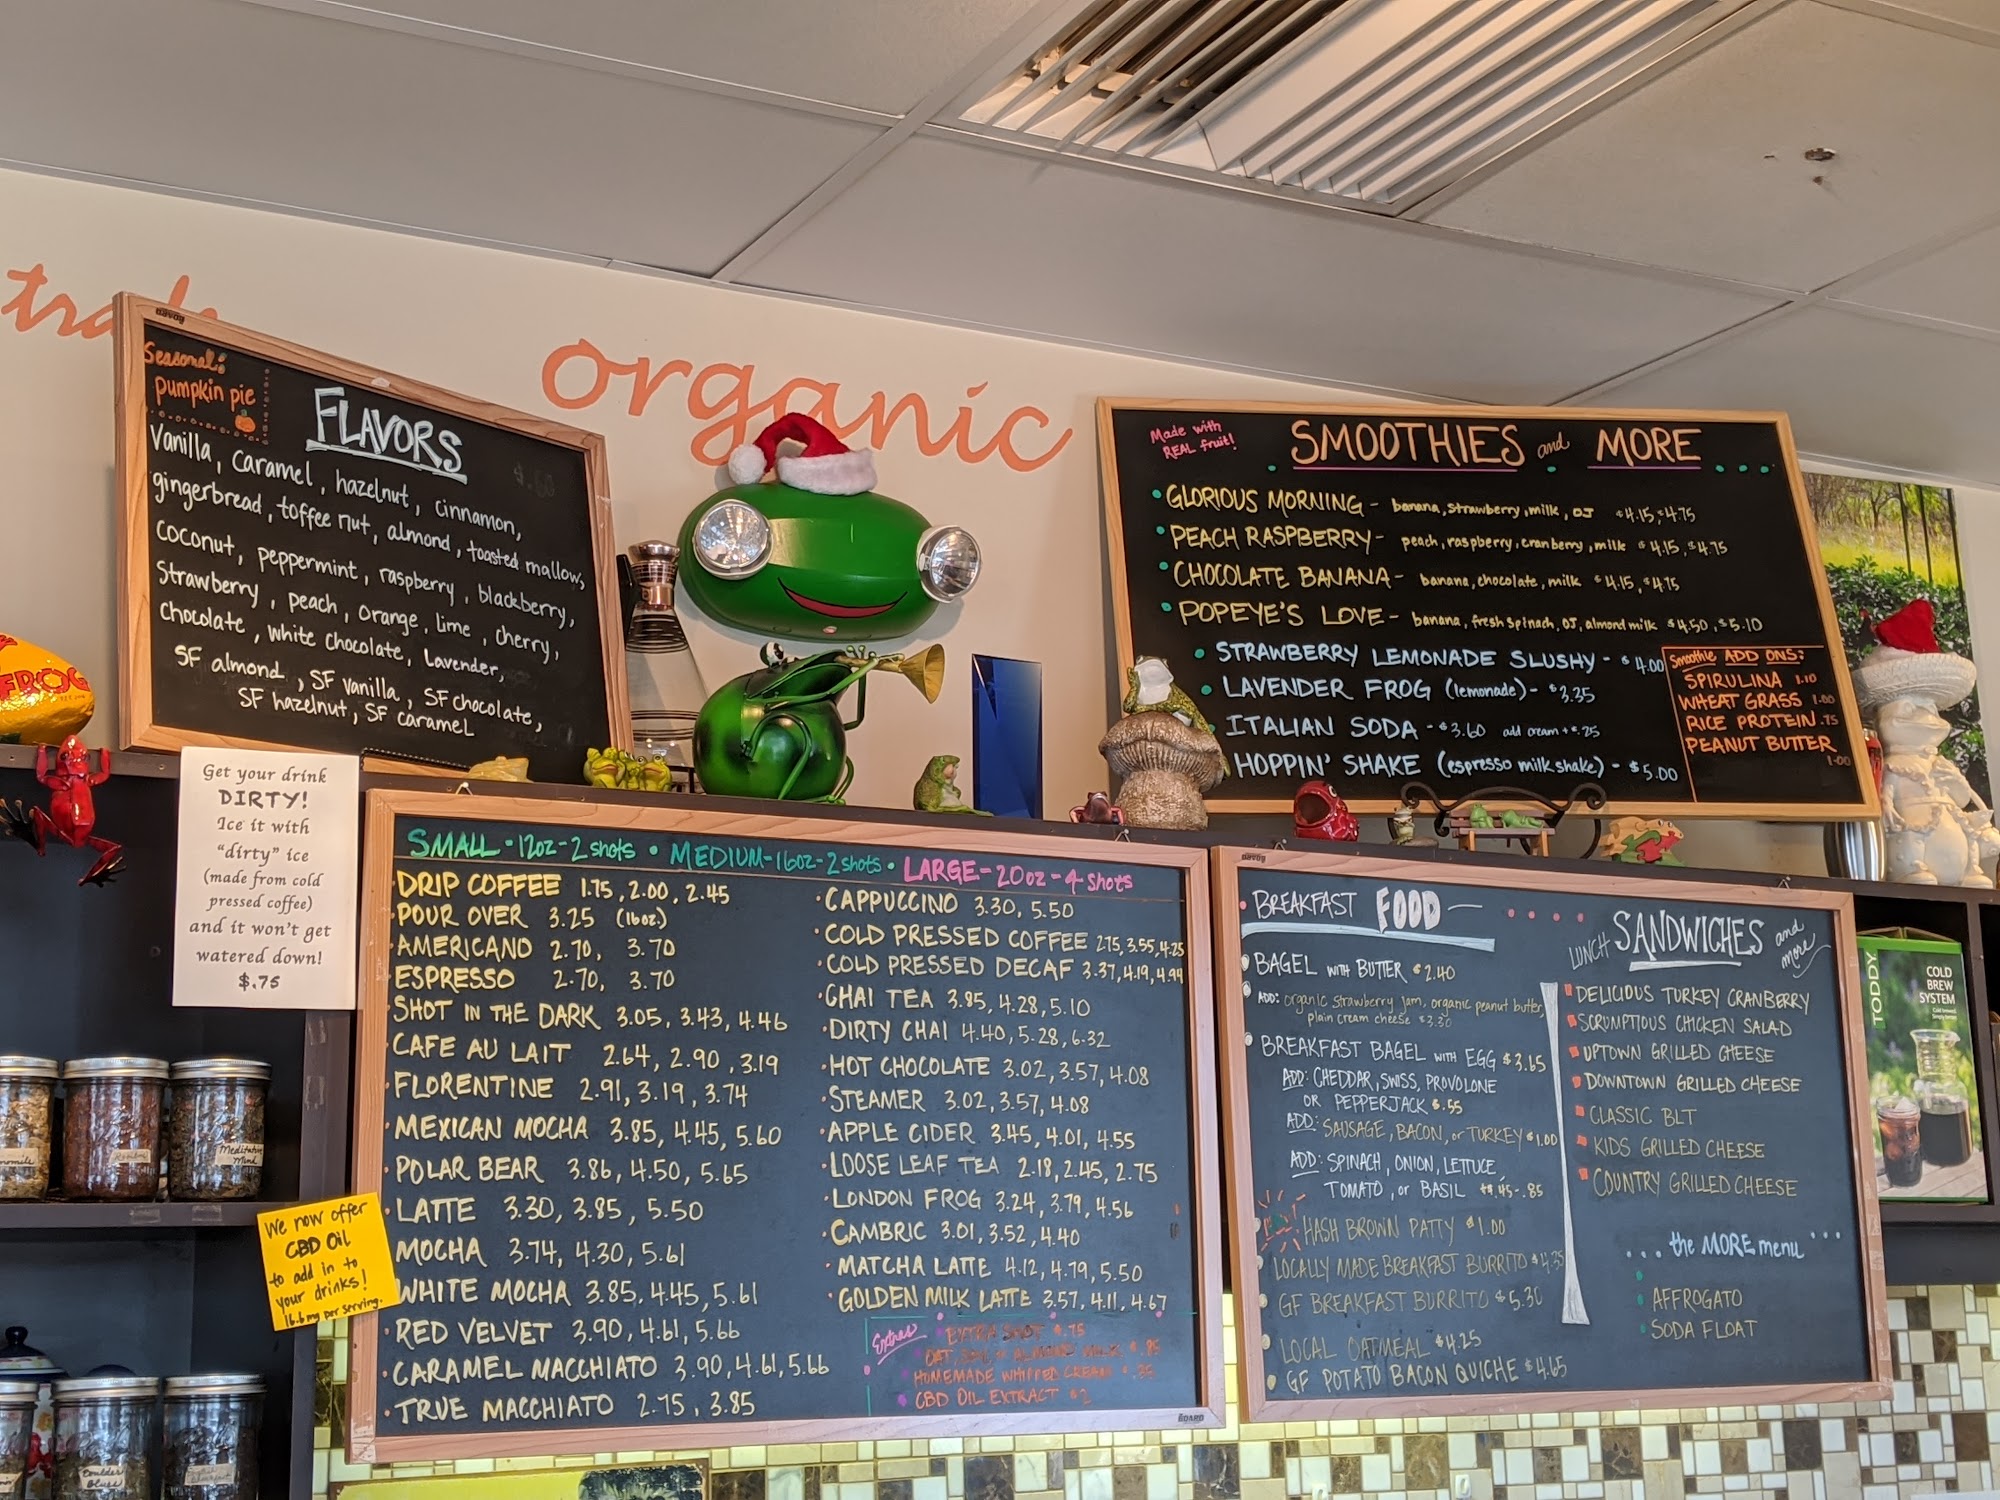 organic
FROG
Seasonal:
pumpkin pie
FLAVORS
Vanilla, caramel, hazelnut, cinnamon,
gingerbread, toffee nut, almond, toasted mallow,
coconut, peppermint, raspberry, blackberry,
strawberry, peach, orange, lime, cherry,
chocolate, white chocolate, lavender,
SF almond, SF vanilla, SF chocolate,
SF hazelnut, SF caramel
Made with
REAL fruit!
SMOOTHIES and MORE
GLORIOUS MORNING - banana, strawberry, milk, OJ $4.15, $4.75
PEACH RASPBERRY - peach, raspberry, cranberry, milk $4.15, $4.75
CHOCOLATE BANANA - banana, chocolate, milk $4.15, $4.75
POPEYE'S LOVE - banana, fresh spinach, OJ, almond milk $4.50, $5.10
STRAWBERRY LEMONADE SLUSHY - $4.00
LAVENDER FROG (lemonade) - $3.35
ITALIAN SODA - $3.60 add cream + $.25
HOPPIN' SHAKE (espresso milkshake) - $5.00
Smoothie ADD ONS:
SPIRULINA 1.10
WHEAT GRASS 1.00
RICE PROTEIN .75
PEANUT BUTTER
1.00
Get your drink
DIRTY!
Ice it with
"dirty" ice
(made from cold
pressed coffee)
and it won't get
watered down!
$.75
We now offer
CBD Oil
to add in to
your drinks!
16.6 mg per serving.
SMALL - 12oz - 2 shots • MEDIUM - 16oz - 2 shots • LARGE - 20oz - 4 shots
DRIP COFFEE 1.75, 2.00, 2.45
POUR OVER 3.25 (16oz.)
AMERICANO 2.70, 3.70
ESPRESSO 2.70, 3.70
SHOT IN THE DARK 3.05, 3.43, 4.46
CAFE AU LAIT 2.64, 2.90, 3.19
FLORENTINE 2.91, 3.19, 3.74
MEXICAN MOCHA 3.85, 4.45, 5.60
POLAR BEAR 3.86, 4.50, 5.65
LATTE 3.30, 3.85, 5.50
MOCHA 3.74, 4.30, 5.61
WHITE MOCHA 3.85, 4.45, 5.61
RED VELVET 3.90, 4.61, 5.66
CARAMEL MACCHIATO 3.90, 4.61, 5.66
TRUE MACCHIATO 2.75, 3.85
CAPPUCCINO 3.30, 5.50
COLD PRESSED COFFEE 2.75, 3.55, 4.25
COLD PRESSED DECAF 3.37, 4.19, 4.94
CHAI TEA 3.85, 4.28, 5.10
DIRTY CHAI 4.40, 5.28, 6.32
HOT CHOCOLATE 3.02, 3.57, 4.08
STEAMER 3.02, 3.57, 4.08
APPLE CIDER 3.45, 4.01, 4.55
LOOSE LEAF TEA 2.18, 2.45, 2.75
LONDON FROG 3.24, 3.79, 4.56
CAMBRIC 3.01, 3.52, 4.40
MATCHA LATTE 4.12, 4.79, 5.50
GOLDEN MILK LATTE 3.57, 4.11, 4.67
Extras
EXTRA SHOT $.75
OAT, SOY, or ALMOND MILK $.85
HOMEMADE WHIPPED CREAM $.35
CBD OIL EXTRACT $2
BREAKFAST FOOD
BAGEL WITH BUTTER $2.40
ADD: organic strawberry jam, organic peanut butter,
plain cream cheese $3.30
BREAKFAST BAGEL WITH EGG $3.65
ADD: CHEDDAR, SWISS, PROVOLONE
OR PEPPERJACK $.55
ADD: SAUSAGE, BACON, or TURKEY $1.00
ADD: SPINACH, ONION, LETTUCE,
TOMATO, or BASIL +$.45-.85
HASH BROWN PATTY $1.00
LOCALLY MADE BREAKFAST BURRITO $4.35
GF BREAKFAST BURRITO $5.30
LOCAL OATMEAL $4.25
GF POTATO BACON QUICHE $4.65
LUNCH SANDWICHES and more
DELICIOUS TURKEY CRANBERRY
SCRUMPTIOUS CHICKEN SALAD
UPTOWN GRILLED CHEESE
DOWNTOWN GRILLED CHEESE
CLASSIC BLT
KIDS GRILLED CHEESE
COUNTRY GRILLED CHEESE
...the MORE menu...
AFFROGATO
SODA FLOAT
TODDY
COLD
BREW
SYSTEM
Meditative
Mind
Boulder
Blues